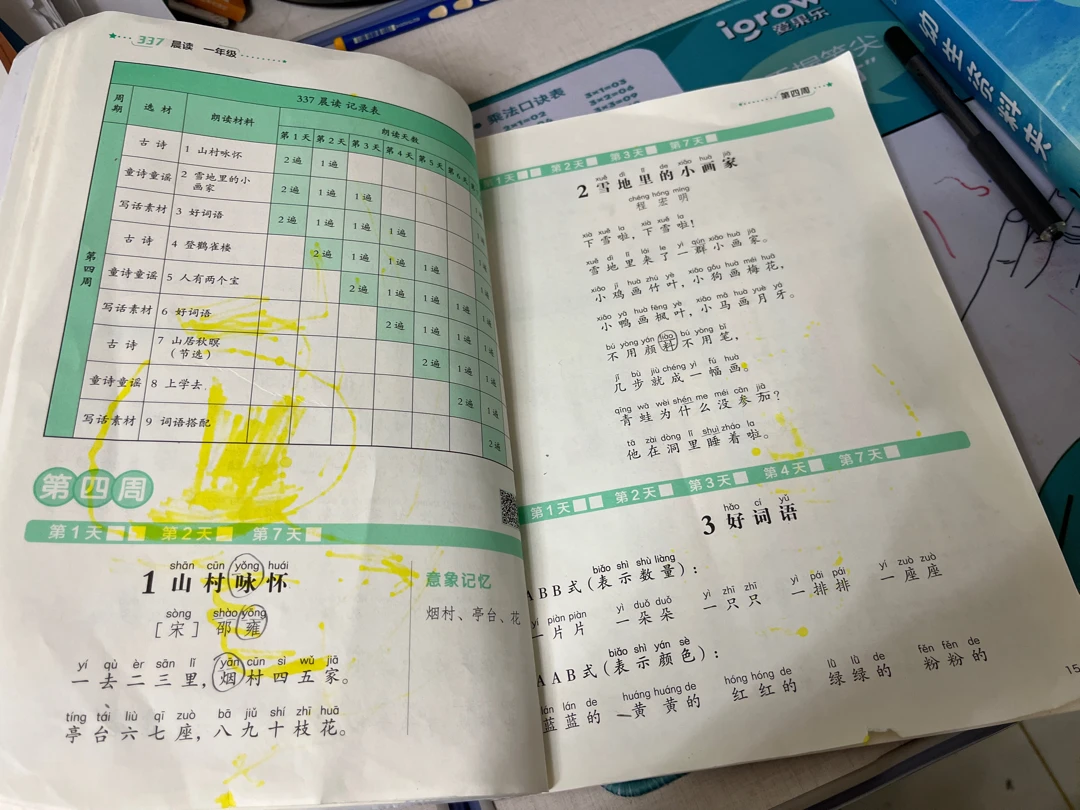 337 晨读 一年级
337 晨读 记录表
周期 选材 朗读材料 朗读天数
第1天 第2天 第3天 第4天 第5天 第6天
第四周
古诗 1 山村咏怀 2遍 1遍
童诗童谣 2 雪地里的小画家 2遍 1遍 1遍
写话素材 3 好词语 2遍 1遍 1遍 1遍
古诗 4 登鹳雀楼 2遍 1遍 1遍 1遍
童诗童谣 5 人有两个宝 2遍 1遍 1遍 1遍 1遍
写话素材 6 好词语 2遍 1遍 1遍 1遍
古诗 7 山居秋暝（节选） 2遍 1遍 1遍
童诗童谣 8 上学去 2遍 1遍
写话素材 9 词语搭配 2遍
第四周
第1天 第2天 第7天
shān cūn yǒng huái
1 山村咏怀
sòng shào yōng
［宋］邵雍
yí qù èr sān lǐ yān cūn sì wǔ jiā
一去二三里，烟村四五家。
tíng tái liù qī zuò bā jiǔ shí zhī huā
亭台六七座，八九十枝花。
意象记忆
烟村、亭台、花
第四周
第1天 第2天 第3天 第7天
xuě dì lǐ de xiǎo huà jiā
2 雪地里的小画家
chéng hóng míng
程宏明
xià xuě la xià xuě la
下雪啦，下雪啦！
xuě dì lǐ lái le yì qún xiǎo huà jiā
雪地里来了一群小画家。
xiǎo jī huà zhú yè xiǎo gǒu huà méi huā
小鸡画竹叶，小狗画梅花，
xiǎo yā huà fēng yè xiǎo mǎ huà yuè yá
小鸭画枫叶，小马画月牙。
bú yòng yán liào bú yòng bǐ
不用颜料不用笔，
jǐ bù jiù chéng yì fú huà
几步就成一幅画。
qīng wā wèi shén me méi cān jiā
青蛙为什么没参加？
tā zài dòng lǐ shuì zháo la
他在洞里睡着啦。
第1天 第2天 第3天 第4天 第7天
hǎo cí yǔ
3 好词语
biǎo shì shù liàng
ABB式（表示数量）：
yí piàn piàn yì duǒ duǒ yì zhī zhī yì pái pái yí zuò zuò
一片片 一朵朵 一只只 一排排 一座座
biǎo shì yán sè
AAB式（表示颜色）：
lán lán de huáng huáng de hóng hóng de lǜ lǜ de fěn fěn de
蓝蓝的 黄黄的 红红的 绿绿的 粉粉的
15
igrow
爱果乐
乘法口诀表
3×1=03
3×2=06
3×3=09
2×1=02